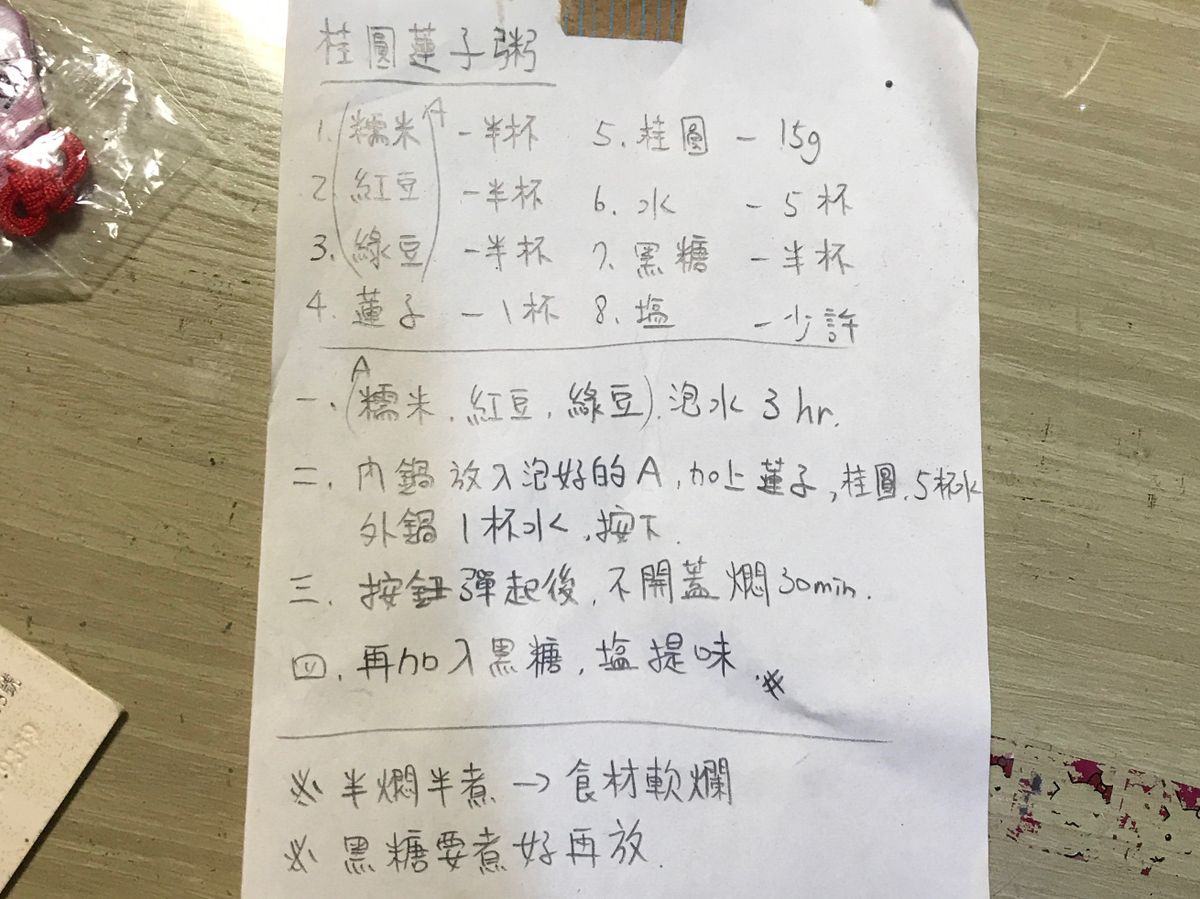 桂圓蓮子粥
1. (糯米 A - 半杯 5. 桂圓 - 15g
2. 紅豆 - 半杯 6. 水 - 5杯
3. 綠豆) - 半杯 7. 黑糖 - 半杯
4. 蓮子 - 1杯 8. 塩 - 少許
A
一. (糯米, 紅豆, 綠豆). 泡水 3 hr.
二. 內鍋放入泡好的A, 加上蓮子, 桂圓, 5杯水
外鍋1杯水, 按下.
三. 按鈕彈起後, 不開蓋燜30min.
四. 再加入黑糖, 塩提味. #
※ 半燜半煮 → 食材軟爛
※ 黑糖要煮好再放.